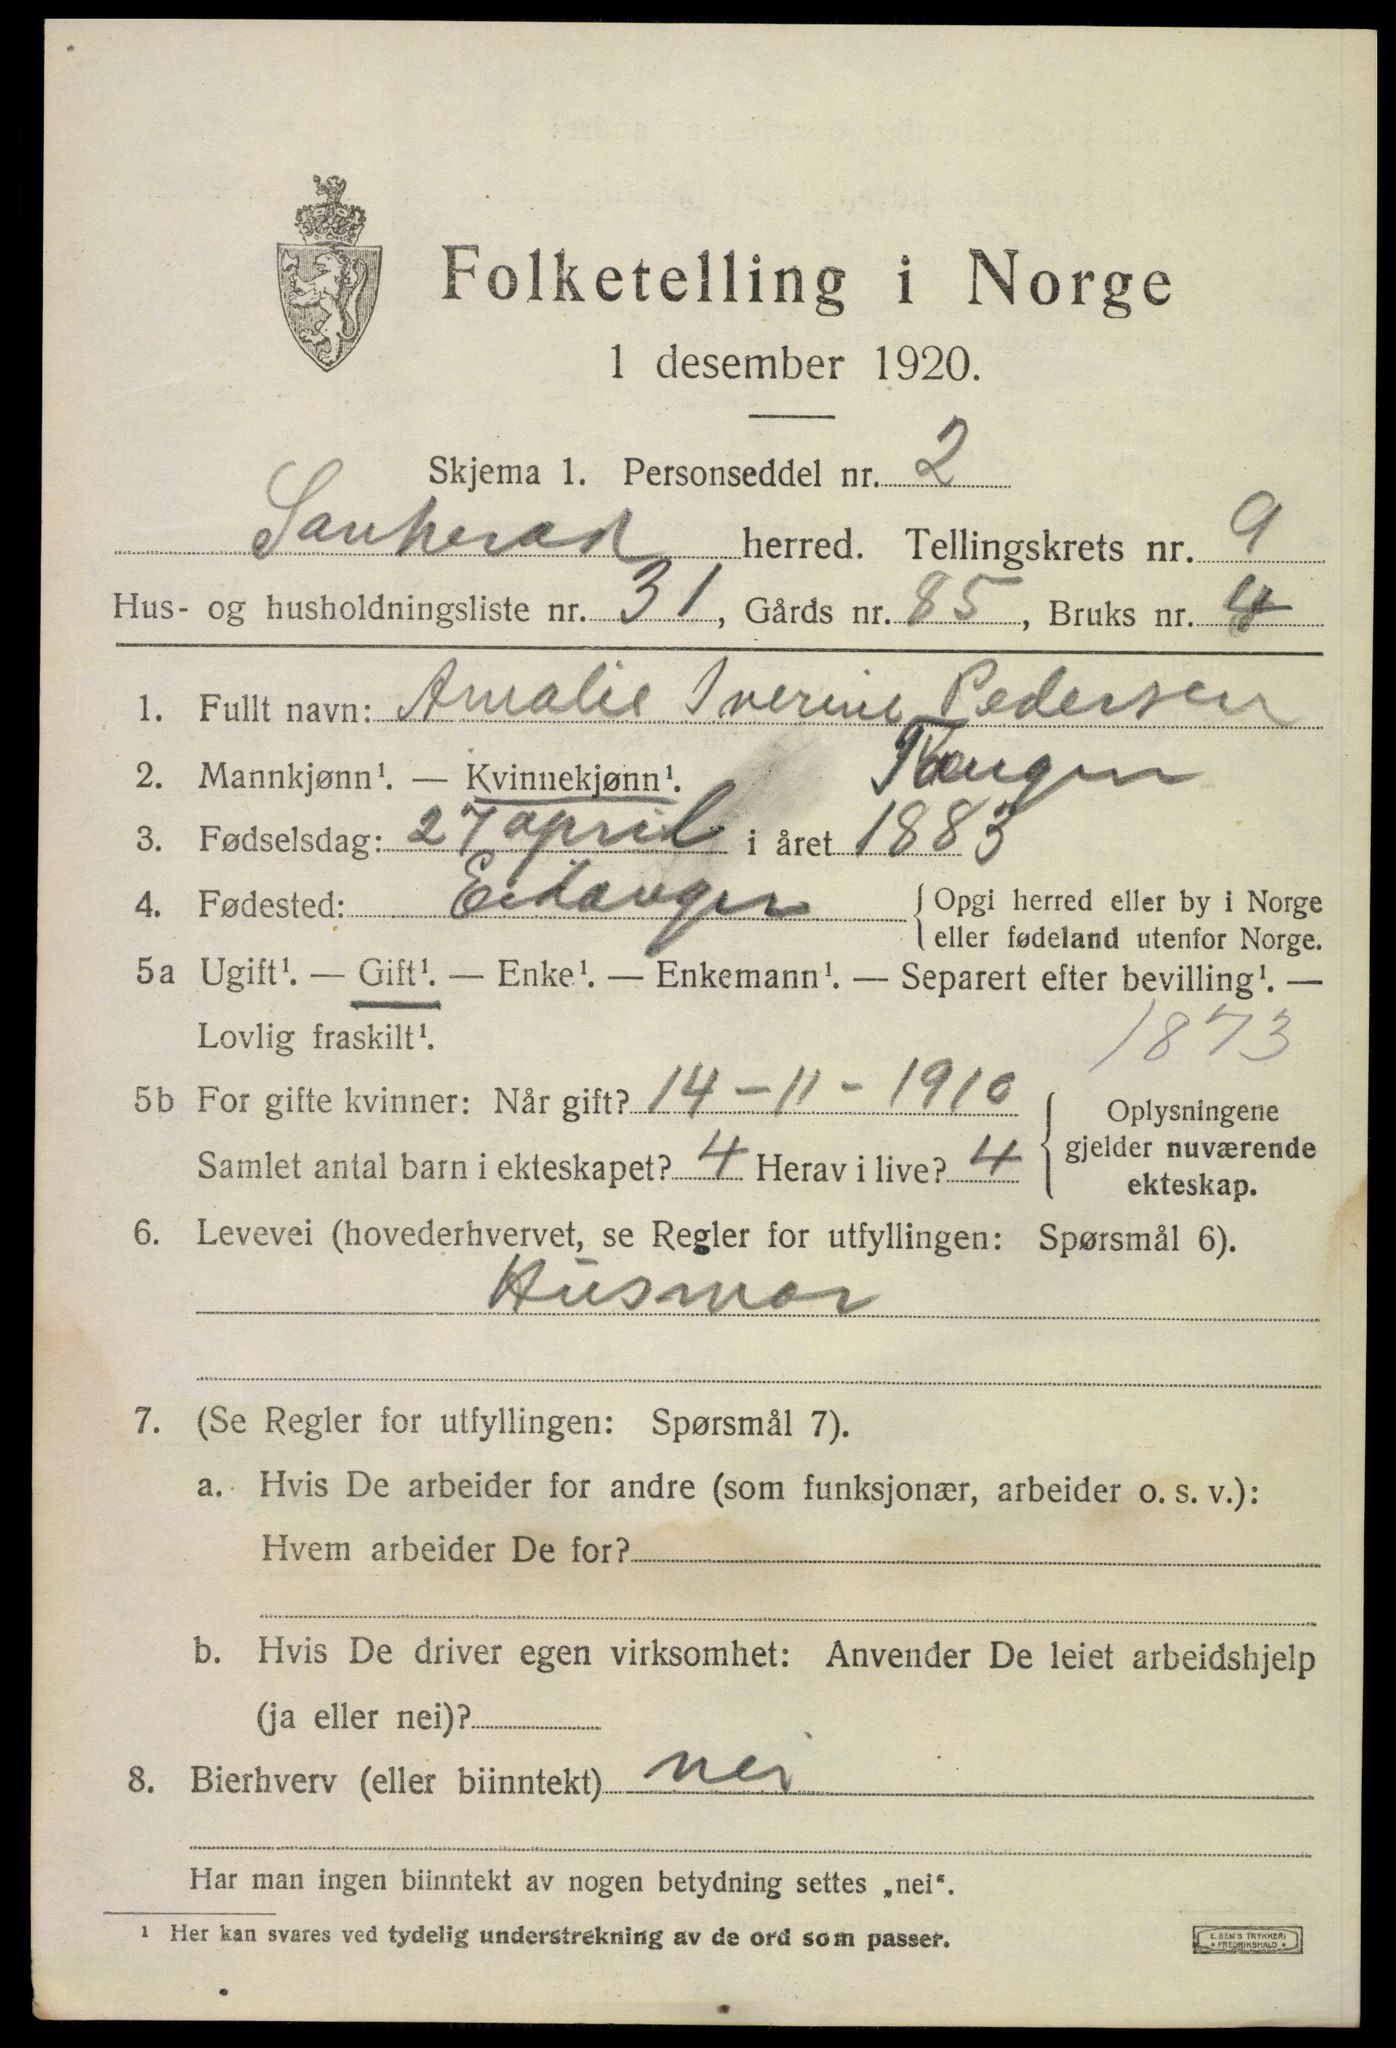 Folketelling i Norge
1 desember 1920.
Skjema 1. Personseddel nr. 2
Sauherad herred. Tellingskrets nr. 9
Hus- og husholdningsliste nr. 31, Gårds nr. 85, Bruks nr. 4
1. Fullt navn: Amalie Iverine Pedersen
2. Mannkjønn¹. — Kvinnekjønn¹.
3. Fødselsdag: 27 april i året 1883
4. Fødested: Eidanger { Opgi herred eller by i Norge
eller fødeland utenfor Norge.
5a Ugift¹. — Gift¹. — Enke¹. — Enkemann¹. — Separert efter bevilling¹. —
Lovlig fraskilt¹. 1873
5b For gifte kvinner: Når gift? 14-11-1910
Samlet antal barn i ekteskapet? 4 Herav i live? 4
{ Oplysningene
gjelder nuværende
ekteskap.
6. Levevei (hovederhvervet, se Regler for utfyllingen: Spørsmål 6).
Husmor
7. (Se Regler for utfyllingen: Spørsmål 7).
a. Hvis De arbeider for andre (som funksjonær, arbeider o. s. v.):
Hvem arbeider De for?
b. Hvis De driver egen virksomhet: Anvender De leiet arbeidshjelp
(ja eller nei)?
8. Bierhverv (eller biinntekt) nei
Har man ingen biinntekt av nogen betydning settes „nei“.
¹ Her kan svares ved tydelig understrekning av de ord som passer.
E. SEM'S TRYKKERI
FREDRIKSHALD